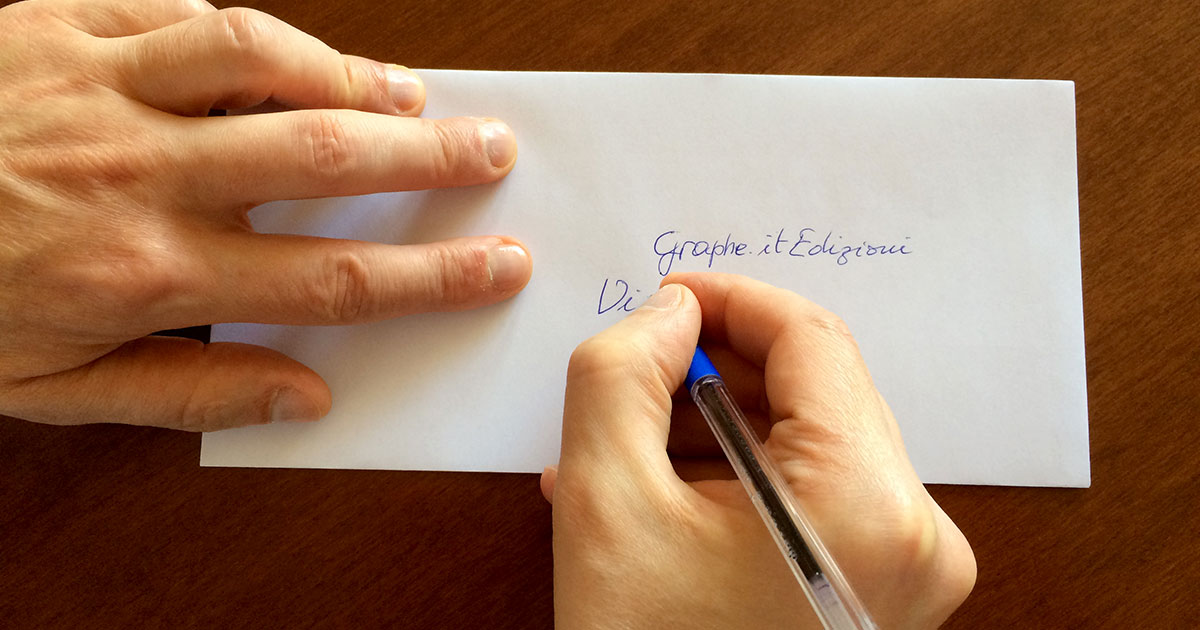 Graphe.it Edizioni
Vi